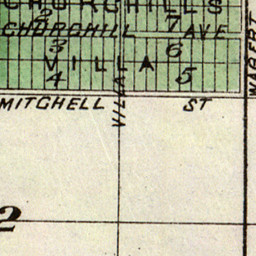 CHURCHILLS
2 7
CHURCHILL AVE
3 6
VILLA
4 5
MITCHELL ST
VILLA
WABERT
2